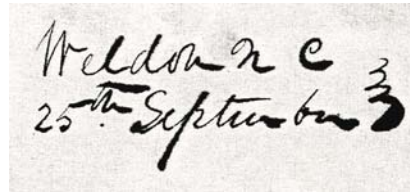 Weldon N C
25th September